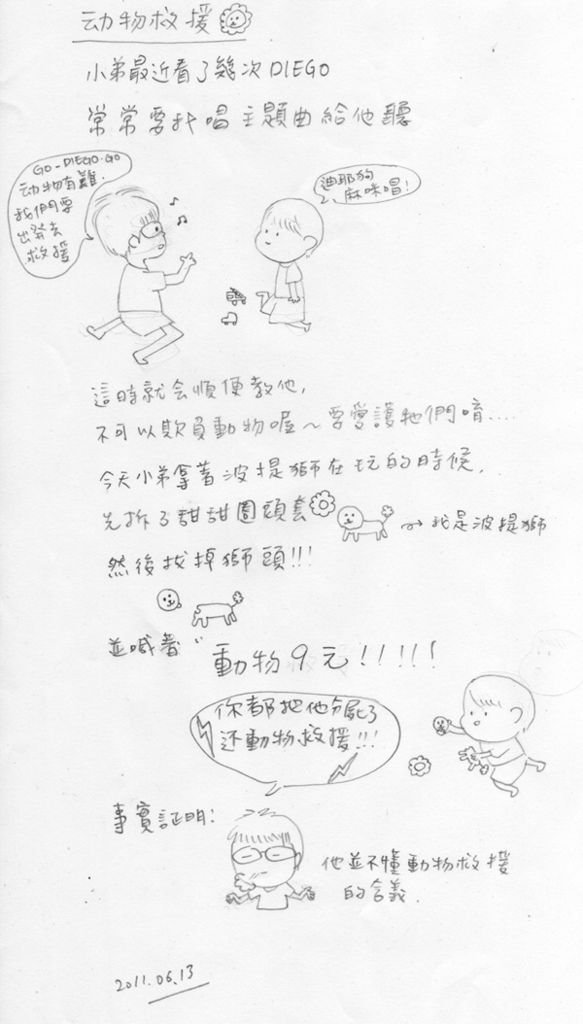 动物救援
小弟最近看了幾次DIEGO
常常要我唱主題曲給他聽
GO-DIEGO-GO
动物有難.
我們要
出發去
救援
迪耶狗
麻咪唱!
這時就会順便教他,
不可以欺負動物喔~要愛護牠們唷....
今天小弟拿著波提獅在玩的時候,
先拆了甜甜圈頭套
→我是波提獅
然後拔掉獅頭!!!
並喊著"
動物9元!!!!!
你都把他分屍了
还動物救援!!!
事實証明:
他並不懂動物救援
的含義.
2011.06.13